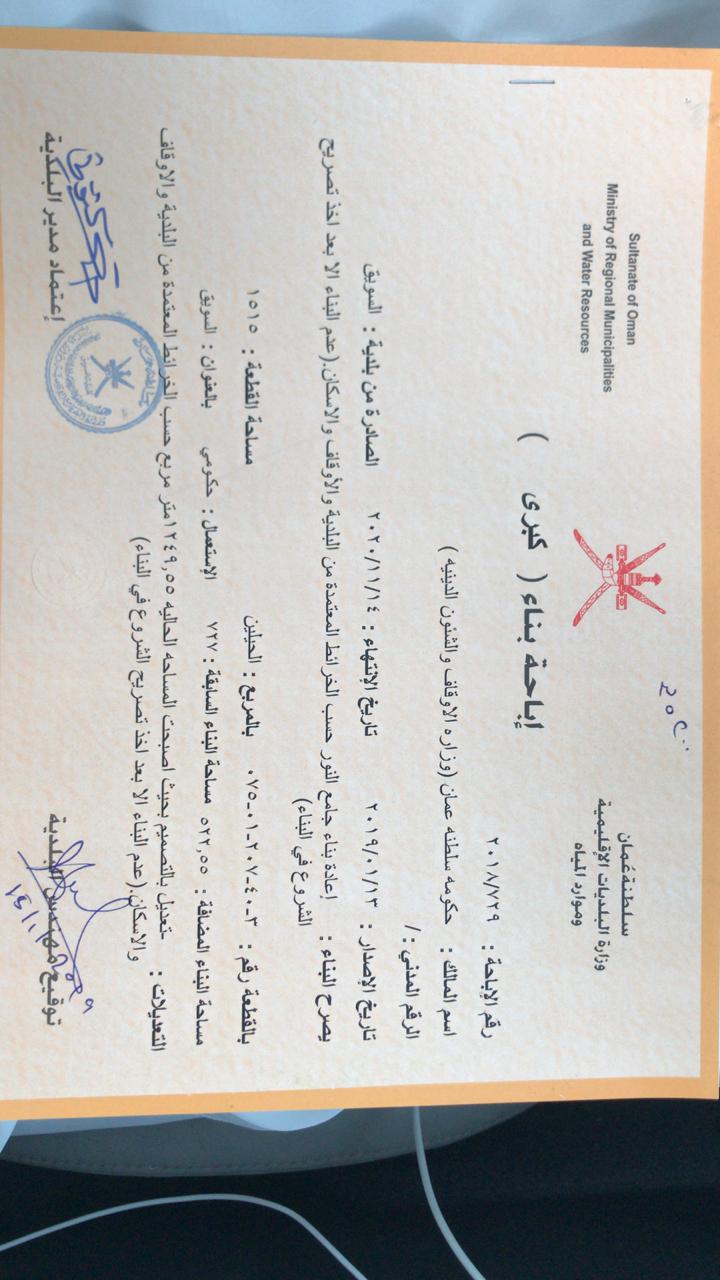 Sultanate of Oman
Ministry of Regional Municipalities
and Water Resources
سلطنة عُمان
وزارة البلديات الإقليمية
وموارد المياه
إباحة بناء ( كبرى )
رقم الإباحة : ٢٠١٨/٧٢٩
اسم المالك : حكومه سلطنه عمان (وزاره الاوقاف والشئون الدينيه )
الرقم المدني : /
تاريخ الإصدار : ٢٠١٩/٠١/١٣ تاريخ الإنتهاء : ٢٠٢٠/١١/١٤ الصادرة من بلدية : السويق
يصرح البناء : إعادة بناء جامع النور حسب الخرائط المعتمدة من البلدية والأوقاف والاسكان.(عدم البناء الا بعد اخذ تصريح
الشروع في البناء)
بالقطعة رقم : ٣-٤٠-٢٠٧-٠١-٠٧٥ بالمربع : الحيلين مساحة القطعة : ١٥١٥
مساحة البناء المضافة : ٥٢٢,٥٥ مساحة البناء السابقة : ٧٢٧ الإستعمال : حكومي بالعنوان : السويق
التعديلات : -تعديل بالتصميم بحيث اصبحت المساحه الحاليه ١٢٤٩,٥٥متر مربع حسب الخرائط المعتمدة من البلدية والاوقاف
والاسكان.(عدم البناء الا بعد اخذ تصريح الشروع في البناء)
توقيع مهندس البلدية إعتماد مدير البلدية